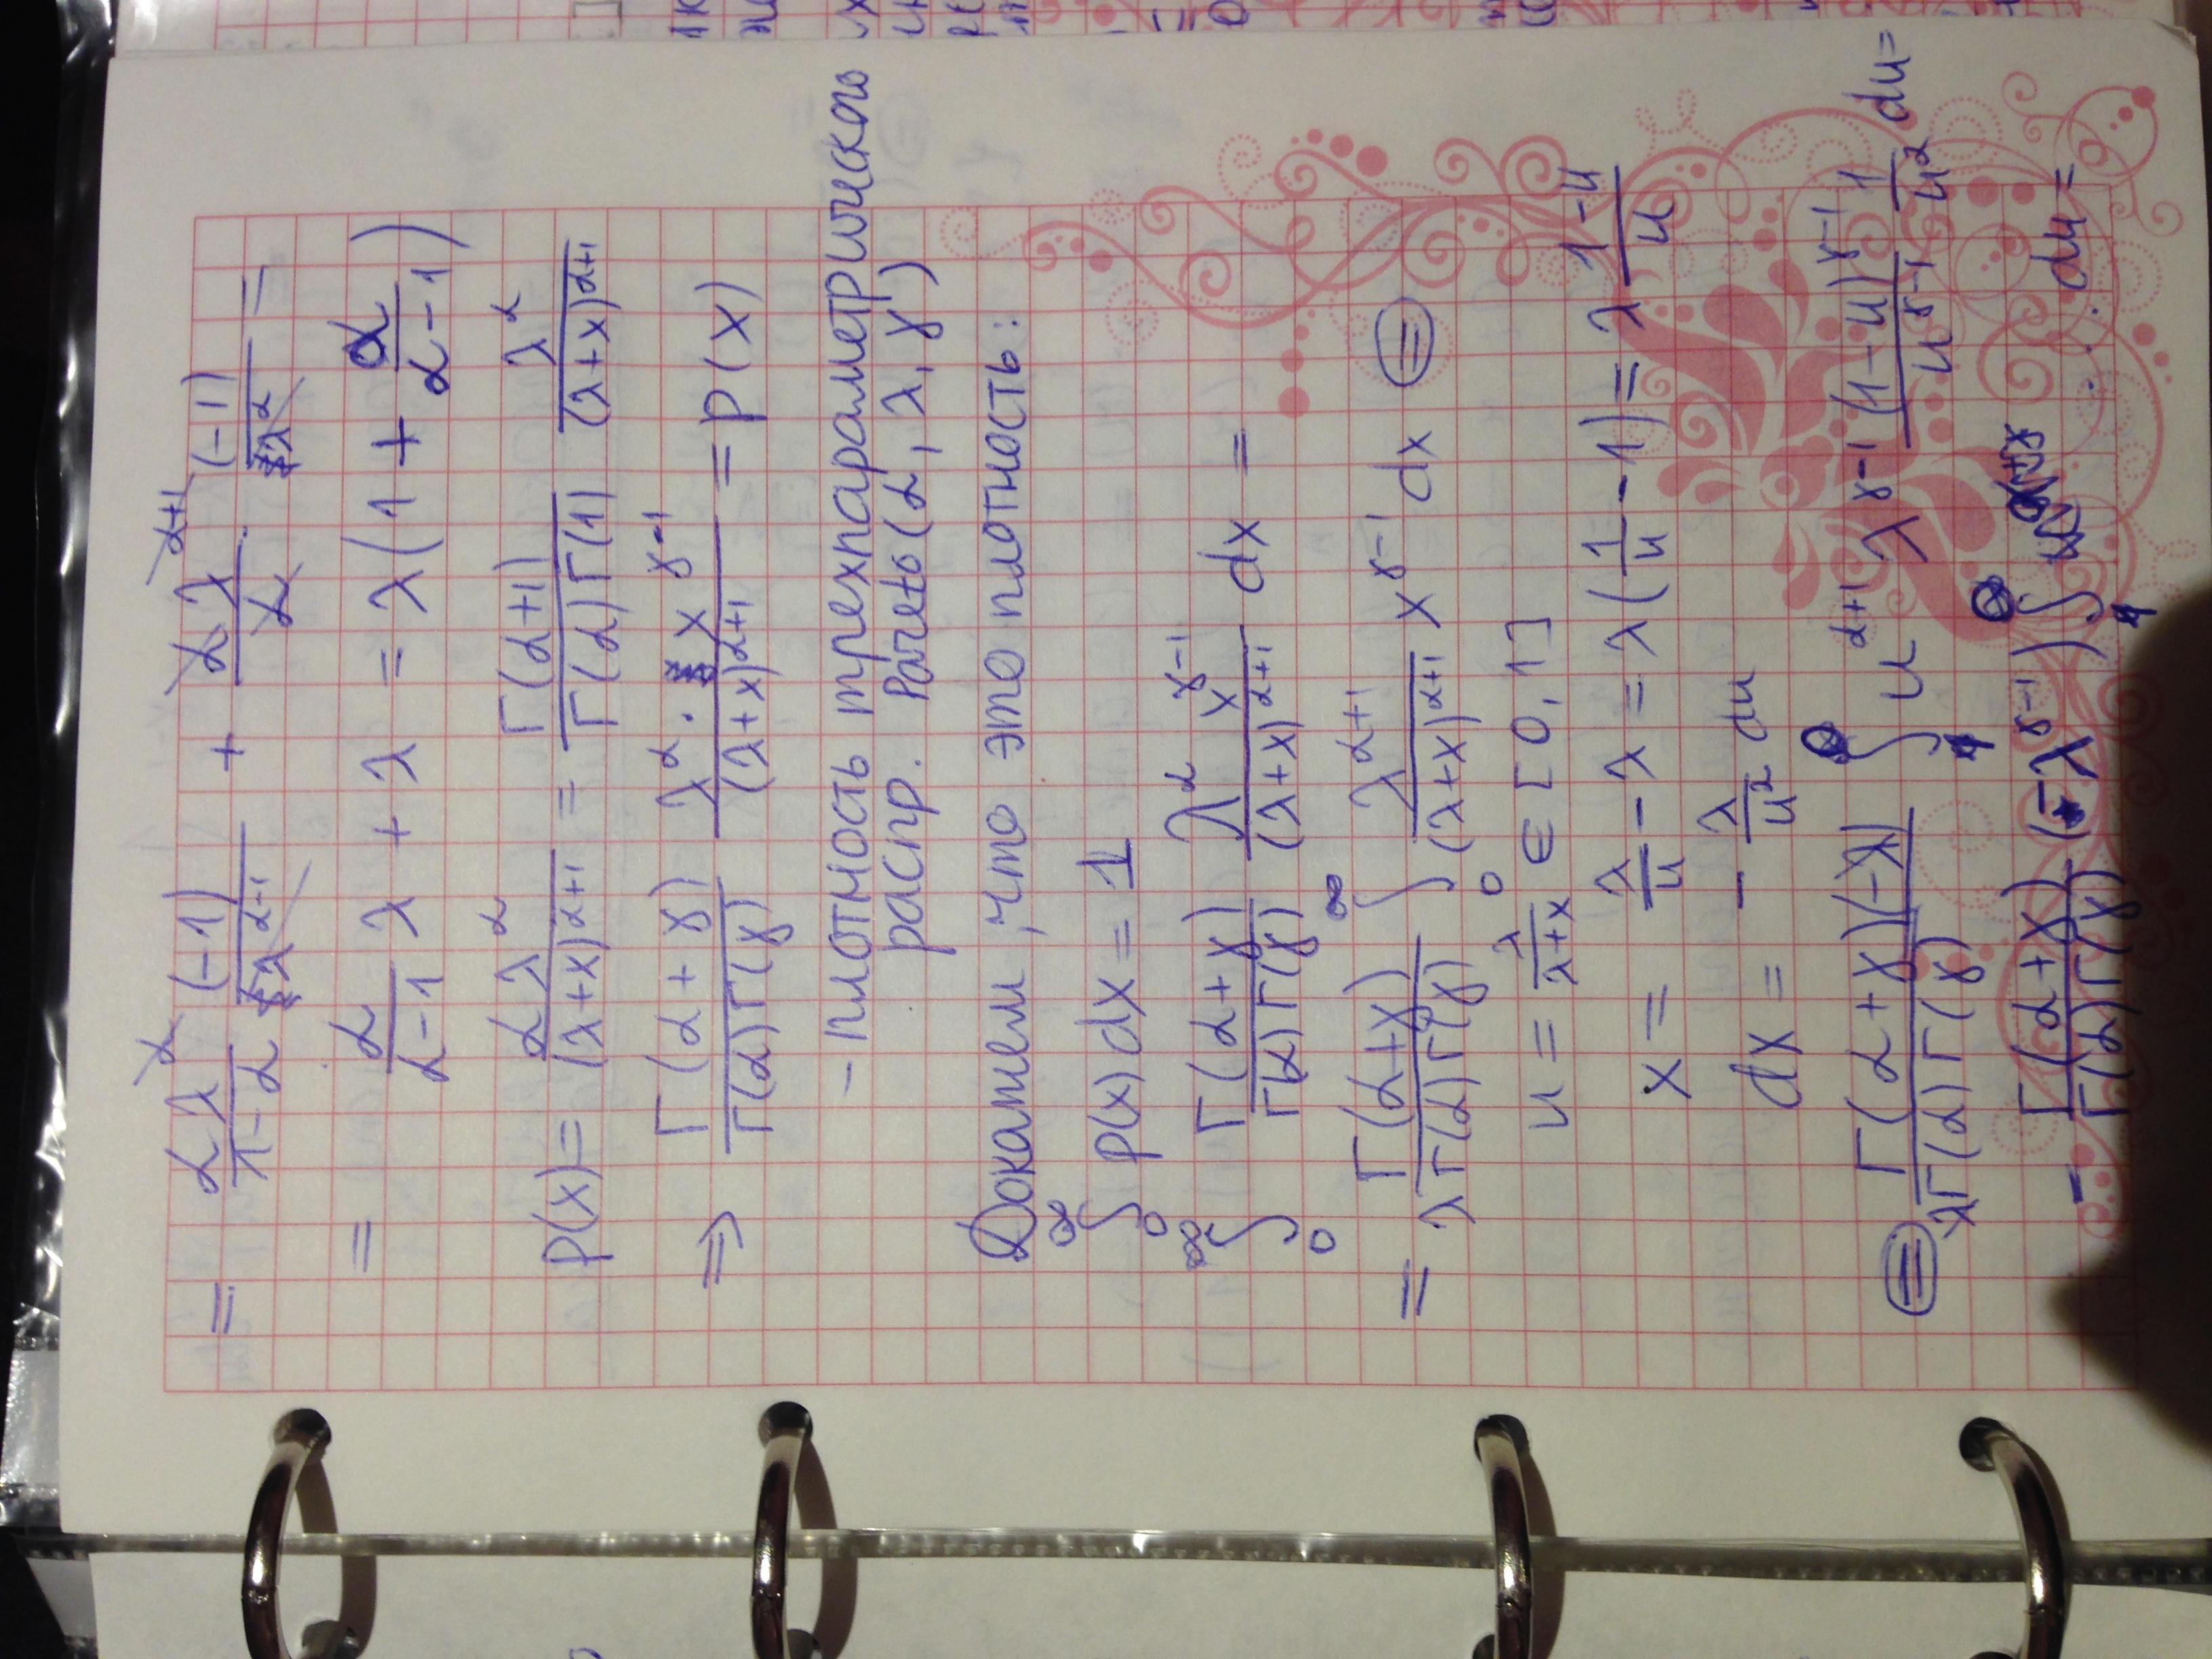 = αλ^α/(1-α) · (-1)/λ^(α-1) + αλ^(α+1)/α · (-1)/λ^α =
= α/(α-1) λ + λ = λ(1 + α/(α-1))
p(x) = αλ^α/(λ+x)^(α+1) = Γ(α+1)/(Γ(α)Γ(1)) λ^α/(λ+x)^(α+1)
⇒ Γ(α+γ)/(Γ(α)Γ(γ)) λ^α · x^(γ-1)/(λ+x)^(α+1) = p(x)
- плотность трехпараметрического
распр. Pareto(α, λ, γ)
Докажем, что это плотность:
∫_0^∞ p(x)dx = 1
∫_0^∞ Γ(α+γ)/(Γ(α)Γ(γ)) λ^α x^(γ-1)/(λ+x)^(α+1) dx =
= Γ(α+γ)/(λΓ(α)Γ(γ)) ∫_0^∞ λ^(α+1)/(λ+x)^(α+1) x^(γ-1) dx ⊜
u = λ/(λ+x) ∈ [0,1]
x = λ/u - λ = λ(1/u - 1) = λ (1-u)/u
dx = - λ/u² du
⊜ Γ(α+γ)(-λ)/(λΓ(α)Γ(γ)) ∫_1^0 u^(α+1) λ^(γ-1) (1-u)^(γ-1)/u^(γ-1) 1/u² du =
= Γ(α+γ)/(Γ(α)Γ(γ)) (-λ^(γ-1)) ∫_1^0 ... du =